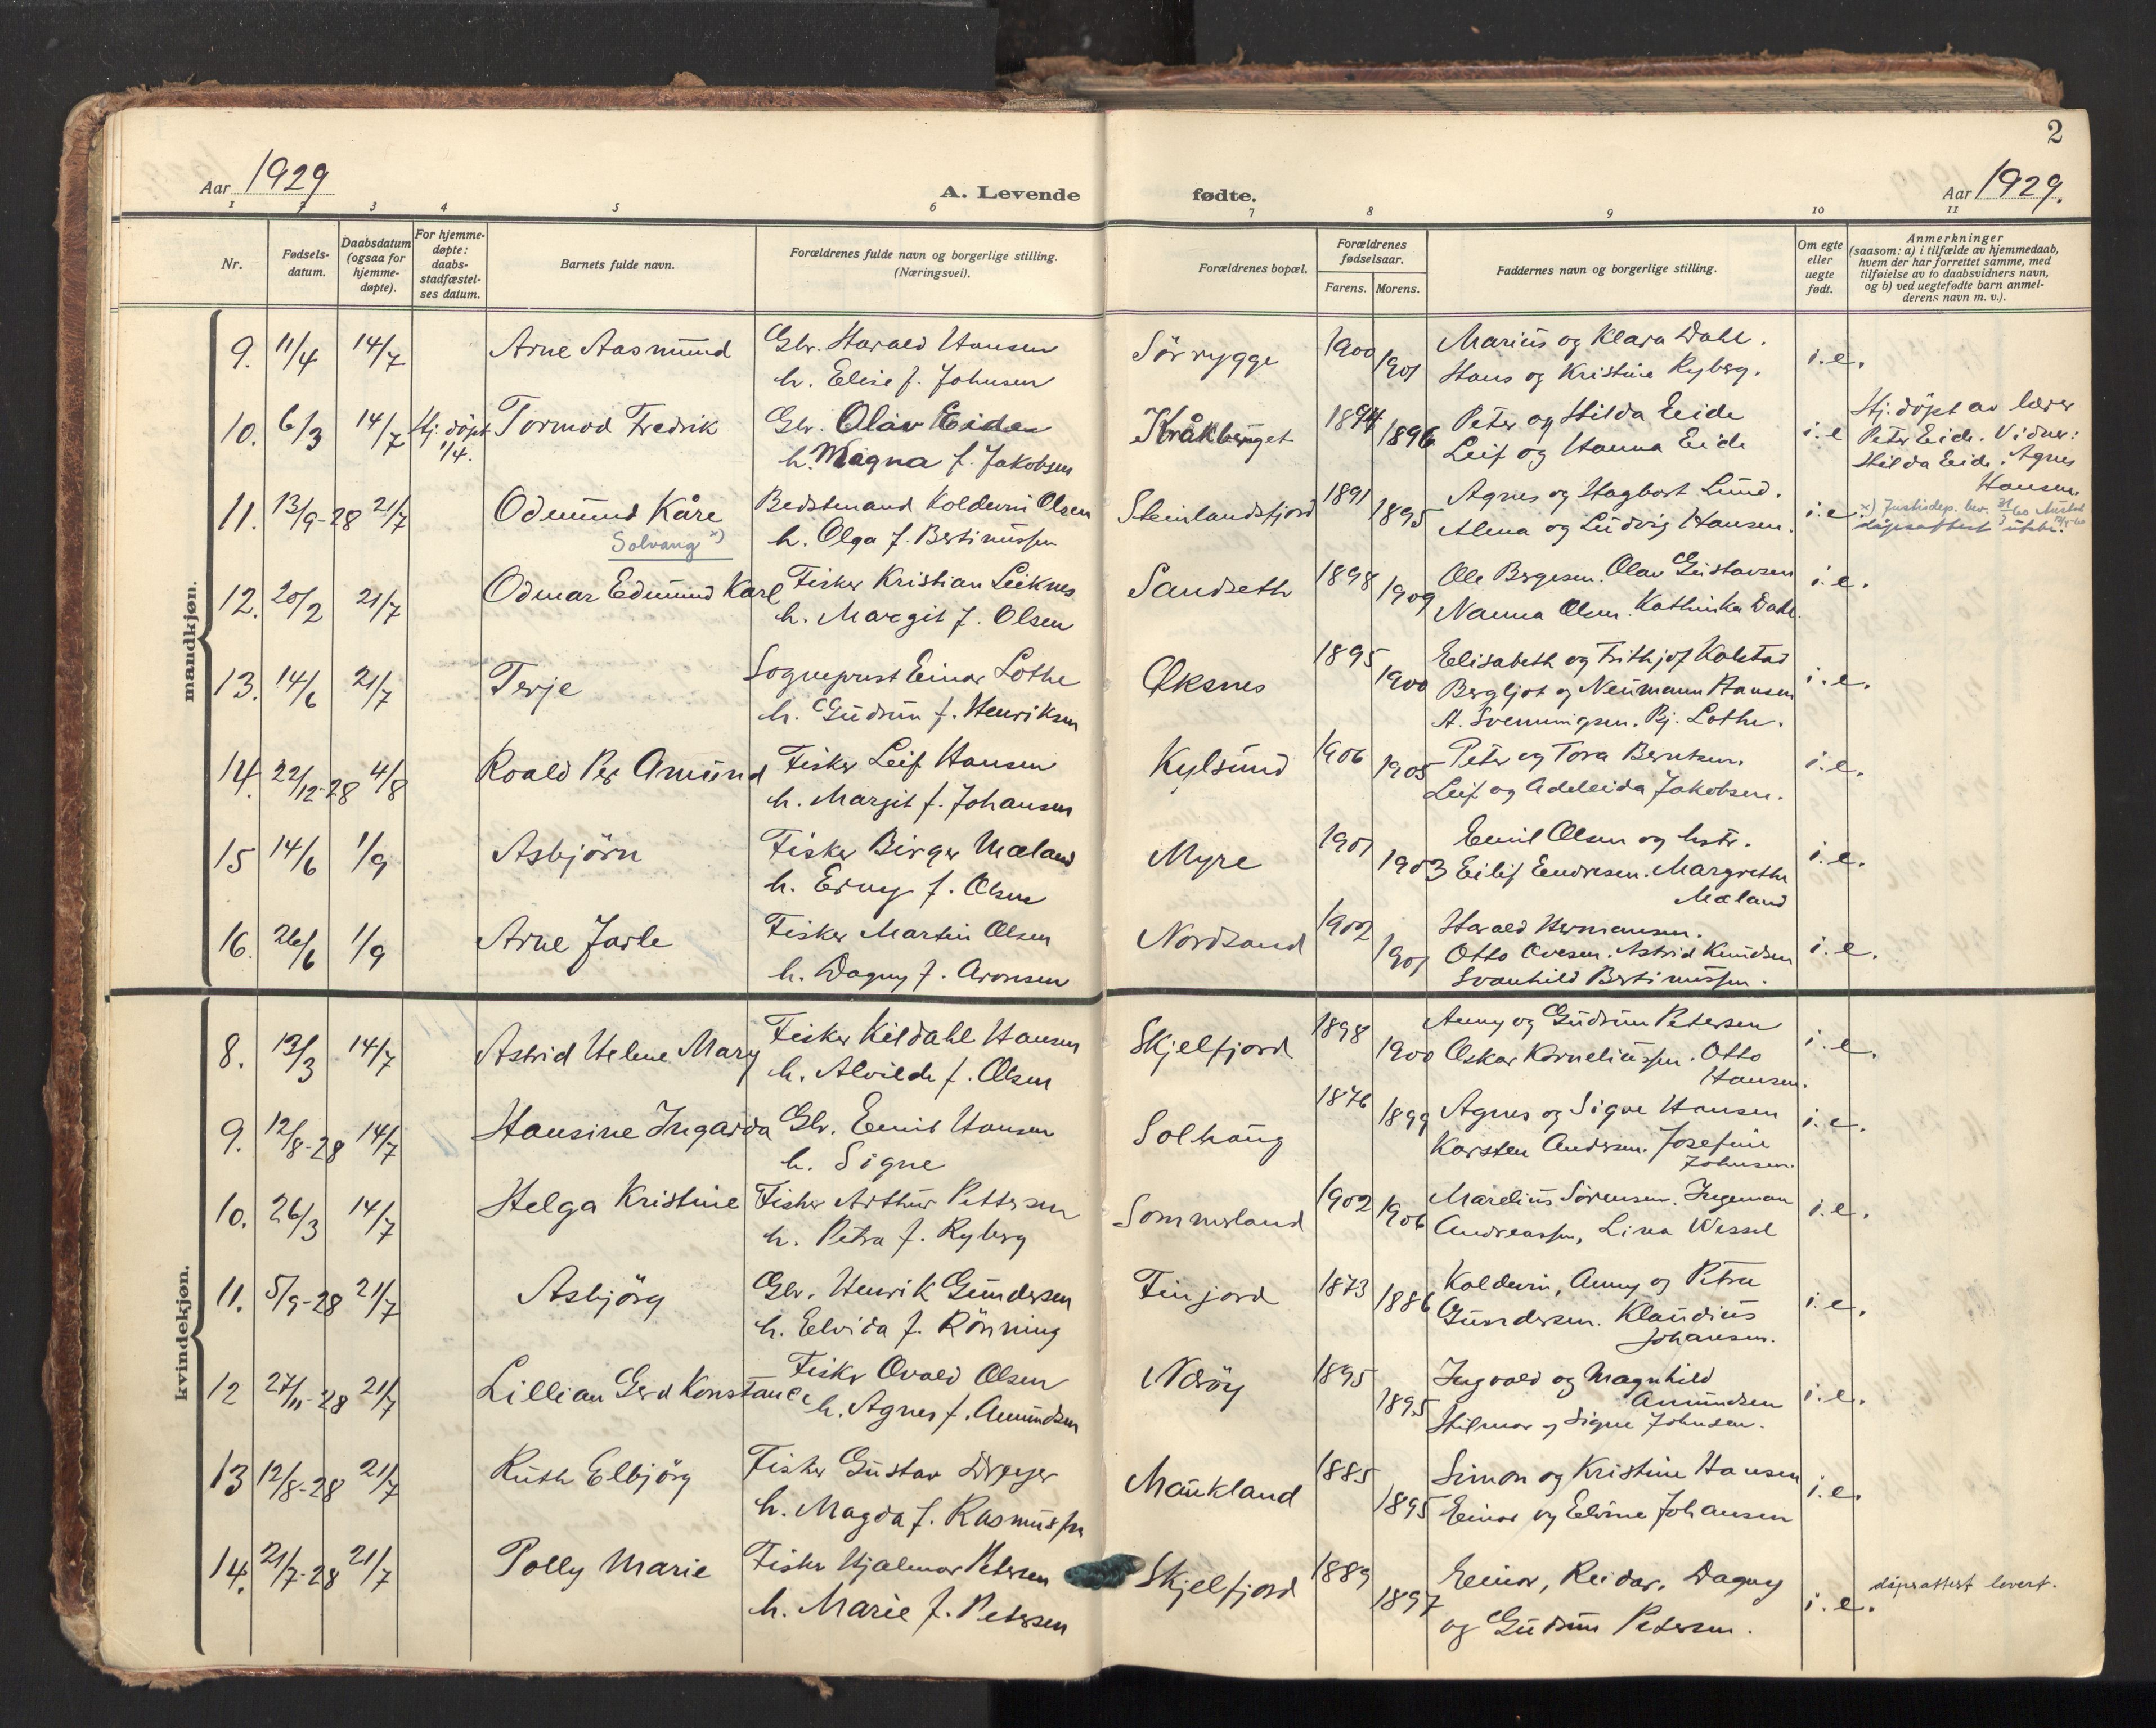 2
Aar 1929
A. Levende
fødte.
Aar 1929.
1 2 3 4 5 6 7 8 9 10 11
Nr.
Fødsels-
datum.
Daabsdatum
(ogsaa for
hjemme-
døpte).
For hjemme-
døpte:
daabs-
stadfæstel-
ses datum.
Barnets fulde navn.
Forældrenes fulde navn og borgerlige stilling.
(Næringsvei).
Forældrenes bopæl.
Forældrenes
fødselsaar.
Farens. Morens.
Faddernes navn og borgerlige stilling.
Om egte
eller
uegte
født.
Anmerkninger
(saasom: a) i tilfælde av hjemmedaab,
hvem der har forrettet samme, med
tilføielse av to daabsvidners navn,
og b) ved uegtefødte barn anmel-
derens navn m. v.).
mandkjøn.
9. 11/4 14/7 Arne Aasmund Gbr. Harald Hansen Sörrygge 1900 Marius og Klara Dahl. i.e.
h. Elise f. Johnsen 1901 Hans og Kristine Ryberg.
10. 6/3 14/7 Hj. döpt Tormod Fredrik Gbr. Olav Eide Kråkberget 1894 Peter og Hilda Eide i.e Hj. döpt av lærer
1/4. h. Magna f. Jakobsen 1896 Leif og Hanna Eide Peter Eide. Vidner:
Hilda Eide. Agnes
Hansen
11. 13/9-28 21/7 Odmund Kåre Bedstemand Koldevin Olsen Steinlandsfjord 1891 Agnes og Hagbart Lund. i.e. x) Justisdep. bev.
Solvang x) h. Olga f. Bertinussen 1895 Alma og Ludvig Hansen. dåpsattest utst.
12. 20/2 21/7 Odmar Edmund Karl Fisker Kristian Leiknes Sandseth 1898 Ole Bergesen. Olav Gustavsen i.e.
h. Margit f. Olsen 1909 Nanna Olsen. Kathinka Dahl.
13. 14/6 21/7 Terje Sogneprest Einar Lothe Öksnes 1895 Elisabeth og Frithjof Kolstad i.e.
h. Gudrun f. Henriksen 1900 Bergljot og Neumann Hansen
A. Svenningsen. Bj. Lothe.
14. 22/12-28 4/8 Roald Per Amund Fisker Leif Hansen Kylsund 1906 Peter og Tora Berntsen. i.e.
h. Margit f. Johansen 1905 Leif og Adeleida Jakobsen.
15 14/6 1/9 Asbjörn Fisker Birger Mæland Myre 1901 Emil Olsen og hstr. i.e.
h. Erny f. Olsen 1903 Eilif Endresen. Margrethe
Mæland
16. 26/6 1/9 Arne Jarle Fisker Martin Olsen Nordsand 1902 Harald Hermansen. i.e.
h. Dagny f. Aronsen 1901 Otto Ovesen. Astrid Knudsen
Svanhild Bertinussen.
kvindekjøn.
8. 13/3 14/7 Astrid Helene Mary Fisker Kildahl Hansen Skjelfjord 1898 Anny og Gudrun Petersen i.e.
h. Alvilde f. Olsen 1900 Oskar Korneliussen. Otto
Hansen.
9. 12/8-28 14/7 Hansine Ingarda Gbr. Emil Hansen Solhaug 1876 Agnes og Signe Hansen i.e.
h. Signe 1899 Karsten Andersen. Josefine
Johnsen.
10. 26/3 14/7 Helga Kristine Fisker Arthur Pettersen Sommerland 1902 Marelius Sörensen. Ingeman i.e.
h. Petra f. Ryberg 1906 Andreassen, Lina Wessel
11. 5/9-28 21/7 Asbjörg Gbr. Henrik Gundersen Finjord 1873 Koldevin, Anny og Petra i.e.
h. Elvida f. Rönning 1886 Gundersen. Klaudius
Johansen.
12 27/11-28 21/7 Lillian Gerd Konstance Fisker Ovald Olsen Næröy 1895 Ingvald og Magnhild i.e.
h. Agnes f. Amundsen 1895 Amundsen
Hilmar og Signe Johnsen.
13 12/8-28 21/7 Ruth Elbjörg Fisker Gustav Dreyer Maukland 1885 Simon og Kristine Hansen i.e.
h. Magda f. Rasmussen 1895 Einar og Elvine Johansen
14. 21/7-28 21/7 Polly Marie Fisker Hjalmar Petersen Skjelfjord 1889 Einar, Reidar, Dagny i.e. dåpsattest levert.
h. Marie f. Petersen 1897 og Gudrun Petersen.